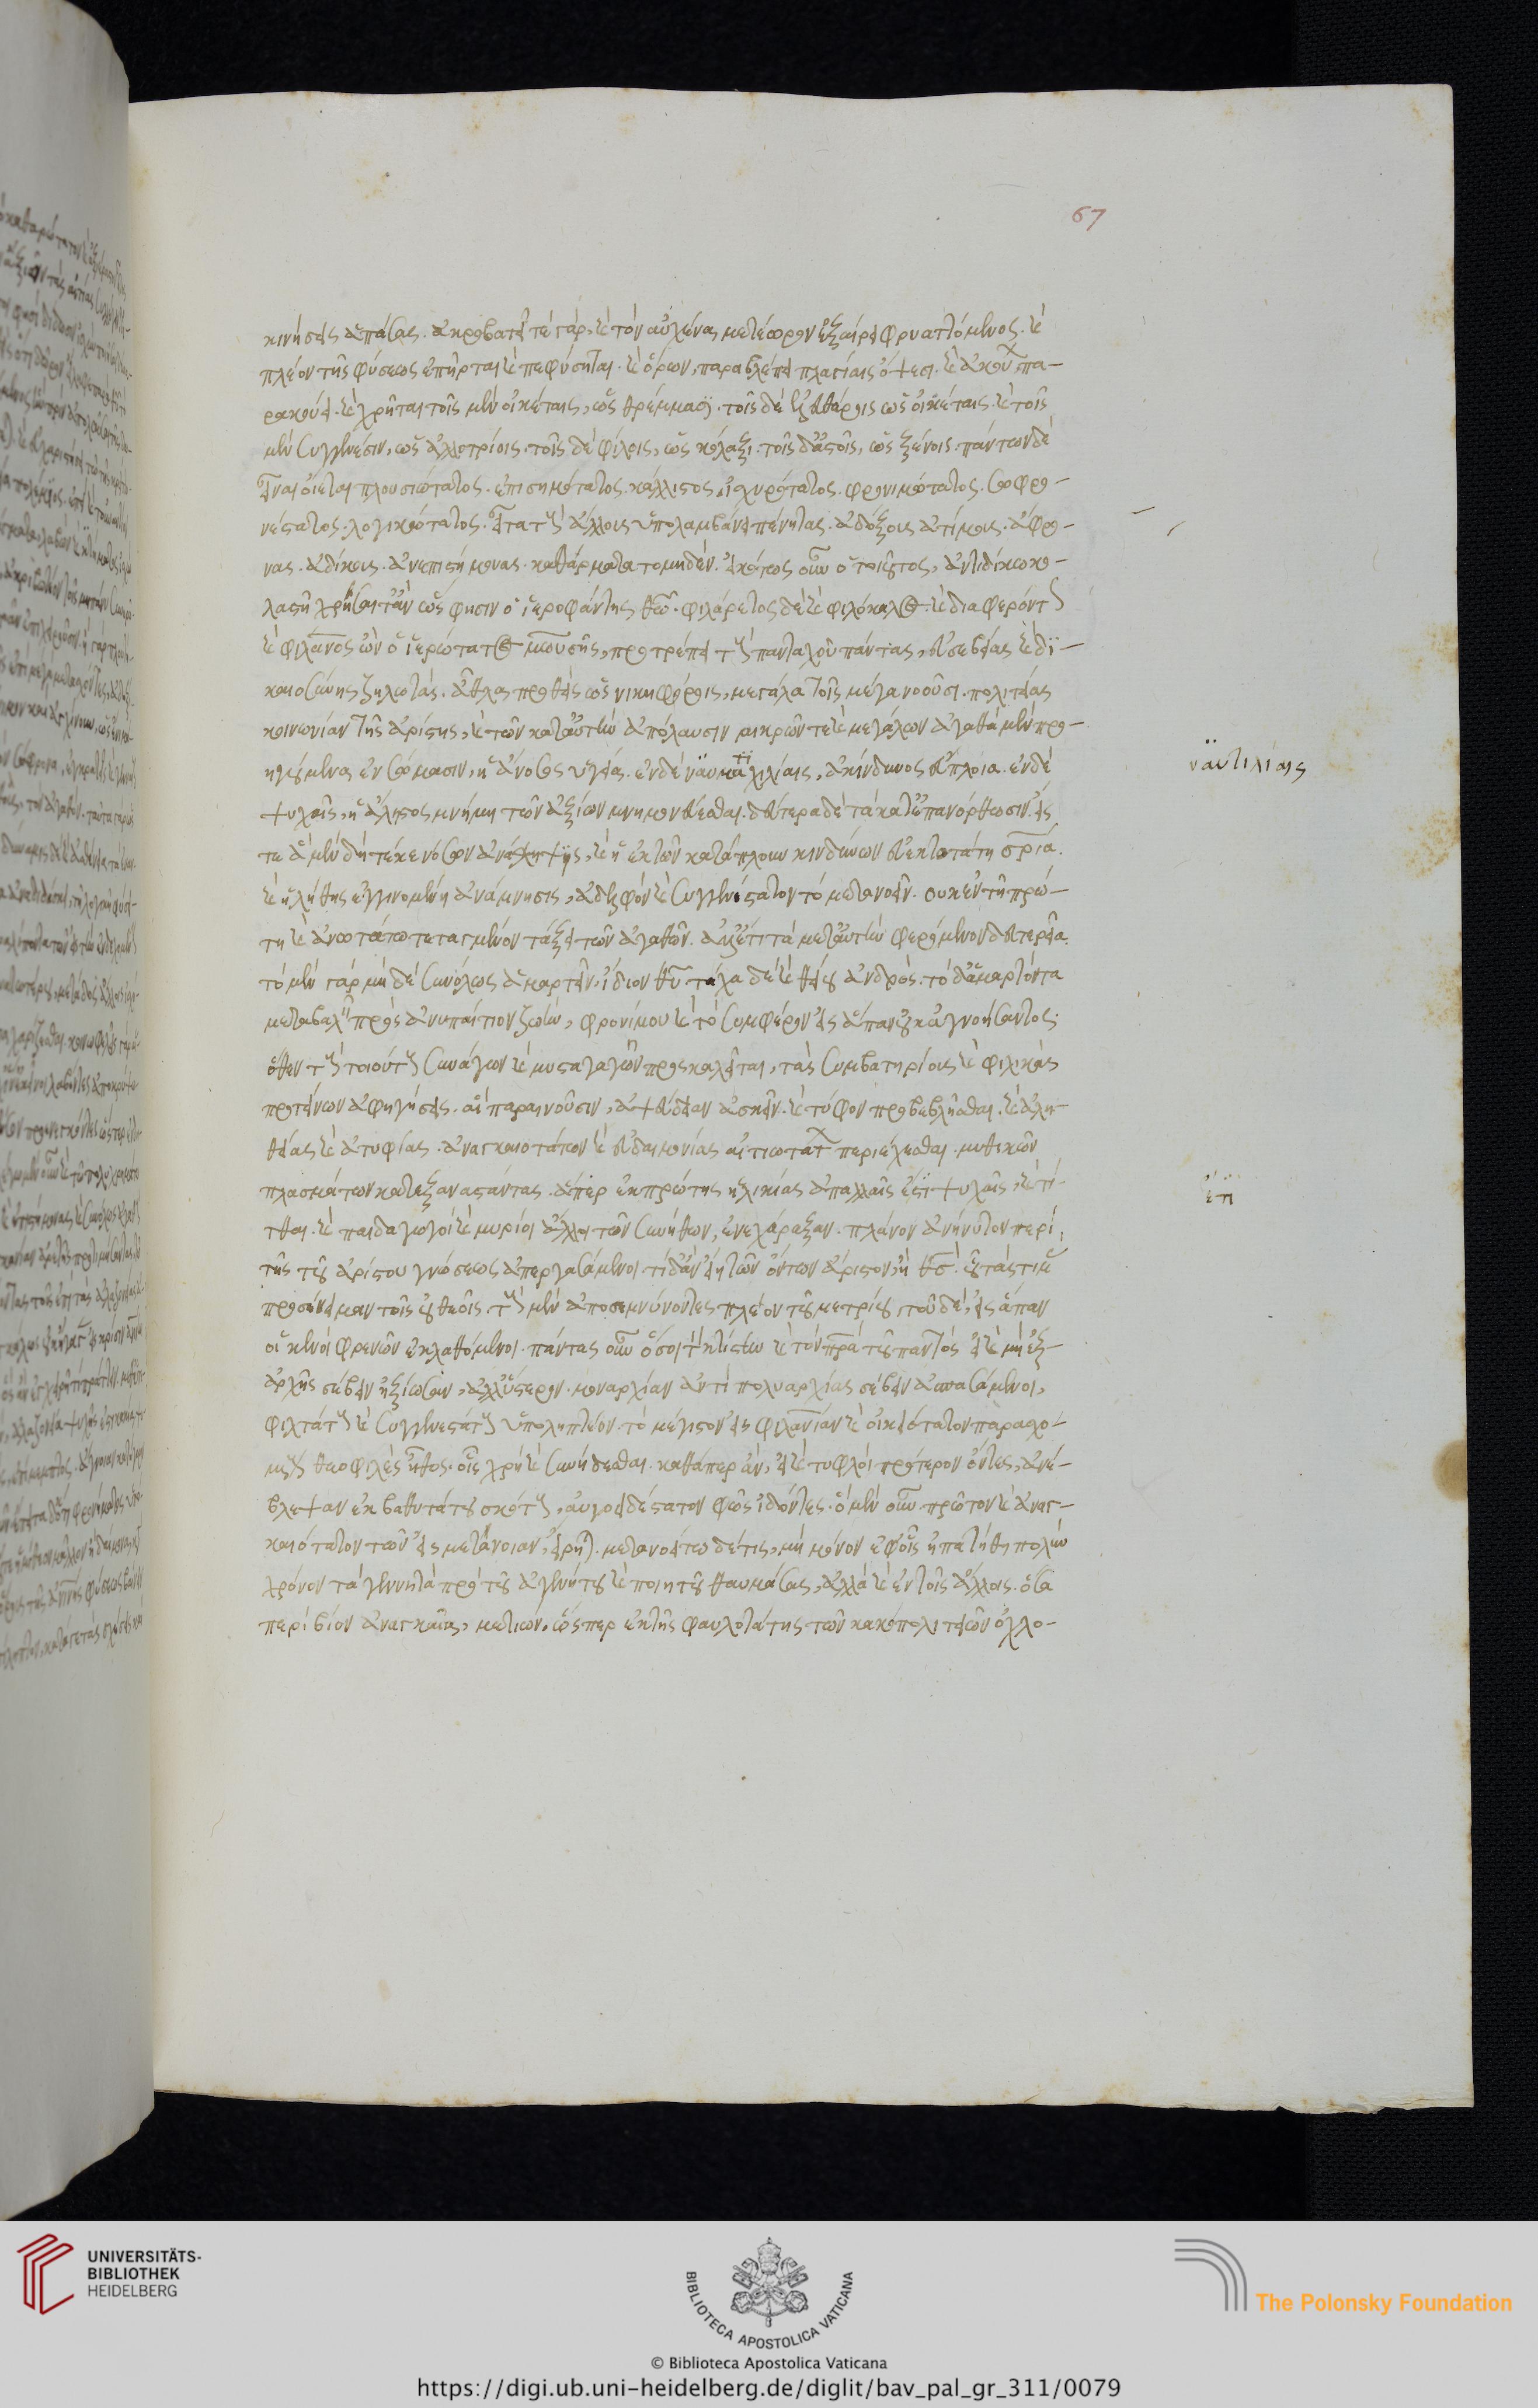 67
κινήσεις ἁπάσας. ἀκροβατεῖ τὲ γάρ, καὶ τὸν αὐχένα μετέωρον ἐξαίρει φρυαττόμενος. καὶ
πλέον τῆς φύσεως ἐπῆρται καὶ πεφύσηται. καὶ ὁρων, παραβλέπει πλαγίαις ὄψεσι. καὶ ἀκούων πα-
ρακούει. καὶ χρῆται τοῖς μὲν οἰκέταις, ὡς θρέμμασϊ. τοῖς δὲ ἐλευθέροις ὡς οἰκέταις. καὶ τοῖς
μὲν συγγενέσιν, ὡς ἀλλοτρίοις. τοῖς δὲ φίλοις, ὡς κόλαξι. τοῖς δ' ἀστοῖς, ὡς ξένοις. πάντων δὲ
εἶναι οἴεται πλουσιώτατος. ἐπισημότατος. κάλλιστος. ἰσχυρότατος. φρονιμώτατος. σωφρο-
νέστατος. λογικώτατος. εἶτα τοὺς ἄλλους ὑπολαμβάνει πένητας. ἀδόξους ἀτίμους. ἄφρο-
νας. ἀδίκους. ἀνεπιστήμονας. καθάρματα το μηδέν. εἰκότως οὖν ὁ τοιοῦτος, ἀντιδίκω κο-
λαστῆ χρήσεται ὥς φησιν ὁ ἱεροφάντης θεῶ. φιλάρετος δὲ καὶ φιλόκαλος. καὶ διαφερόντως
καὶ φιλάνος ὢν ὁ ἱερώτατος μωυσῆς, προτρέπει τοὺς πανταχοῦ πάντας, εὐσεβείας καὶ δϊ-
καιοσύνης ζηλωτάς. ἆθλα προθεὶς ὡς νικηφόροις, μεγάλα τοῖς μετανοοῦσι. πολιτείας
κοινωνίαν τῆς ἀρίστης, καὶ τῶν κατ' αὐτὴν ἀπόλαυσιν μικρῶν τε καὶ μεγάλων ἀγαθὰ μὲν προ-
ηγούμενα ἐν σώμασιν, ἡ ἄνοσος ὑγεία. ἐν δὲ ναυμαχιλίαις, ἀκίνδυνος εὔπλοια. ἐν δὲ
ναὐτιλίαις
ψυχαῖς, ἡ ἄληστος μνήμη τῶν ἀξίων μνημονεύεσθαι. δεύτερα δὲ τὰ κατ' ἐπανόρθωσιν.
καὶ ἡ λήθης ἐγγινομένη ἀνάμνησις, ἀδελφὸν καὶ συγγενέστατον τὸ μετανοεῖν. οὐκ ἐν τῆ πρώ-
τη καὶ ἀνωτάτω τεταγμένον τάξει τῶν ἀγαθῶν. ἀλλ' ἔτι τὰ μετ' αὐτὴν φερόμενον δευτερεῖα.
τὸ μὲν γὰρ μὴ δὲ συνόλως ἁμαρτεῖν, ἴδιον θυ τάχα δὲ καὶ θείου ἀνδρός. τὸ δ' ἁμαρτόντα
μεταβαλεῖν πρὸς ἀνυπαίτιον ζωὴν, φρονίμου καὶ τὸ συμφέρον εἰς ἅπαν οὐκ ἀγνοήσαντος·
ὅθεν τοὺς τοιούτους συνάγων καὶ μυσταγωγῶν προσκαλεῖται, τὰς συμβατηρίους καὶ φιλικὰς
προτείνων ἀφηγήσεις. αἳ παραινοῦσιν, ἀψεύδειαν ἀσκεῖν. καὶ τύφον προβεβλῆσθαι. καὶ ἀλη-
θείας καὶ ἀτυφίας. ἀναγκαιοτάτων καὶ εὐδαιμονίας αἰτιωτάτων περιέχεσθαι. μυθικῶν
πλασμάτων κατεξαναστάντας. ἅπερ ἐκ πρώτης ἡλικίας ἁπαλαῖς ἔτϊ ψυχαῖς, καὶ τί-
ἔτϊ
τθαι. καὶ παιδαγωγοὶ καὶ μυρίοι ἄλλοι τῶν συνήθων, ἐνεχάραξαν. πλάνον ἀνήνυτον περὶ
τῆς τοῦ ἀρίστου γνώσεως ἀπεργασάμενοι τί δ' ἂν εἴη τῶν ὄντων ἄριστον, ἢ θσ. οὗ τὰς τιμὰς
προσένειμαν τοῖς οὐ θεοῖς. τοὺς μὲν ἀποσεμνύνοντες πλέον τοῦ μετρίου, τοῦ δὲ, εἰς ἅπαν
οἱ κενοὶ φρενῶν ἐκλαθόμενοι. πάντας οὖν ὅσοι τὸν κτίστην καὶ τὸν πρα τοῦ παντὸς εἰ καὶ μὴ ἐξ-
ἀρχῆς σέβειν ἠξίωσαν, ἀλλ' ὕστερον. μοναρχίαν ἀντὶ πολυαρχίας σέβειν ἀσπασάμενοι,
φιλτάτους καὶ συγγενεστάτους ὑποληπτέον. τὸ μέγιστον εἰς φιλανίαν καὶ οἰκειότατον παρασχο-
μένους θεοφιλὲς ἦθος. οἷς χρὴ καὶ συνήδεσθαι. καθάπερ ἂν, εἰ καὶ τυφλοὶ πρότερον ὄντες, ἀνέ-
βλεψαν ἐκ βαθυτάτου σκότους, αὐγοειδέστατον φῶς ἰδόντες. ὁ μὲν οὖν πρῶτον καὶ ἀναγ-
καιότατον τῶν εἰς μετάνοιαν, εἴρηται. μετανοείτω δέ τις, μὴ μόνον ἐφ' οἷς ἠπατήθη πολὺν
χρόνον τὰ γεννητὰ πρὸ τοῦ ἀγενήτου καὶ ποιητοῦ θαυμάσας, ἀλλὰ καὶ ἐν τοῖς ἄλλοις. ὅσα
περὶ βίον ἀναγκαῖα, μετιὼν, ὥσπερ ἐκ τῆς φαυλοτάτης τῶν κακοπολιτειῶν ὀχλο-
UNIVERSITÄTS-
BIBLIOTHEK
HEIDELBERG
BIBLIOTECA APOSTOLICA VATICANA
© Biblioteca Apostolica Vaticana
The Polonsky Foundation
https://digi.ub.uni-heidelberg.de/diglit/bav_pal_gr_311/0079